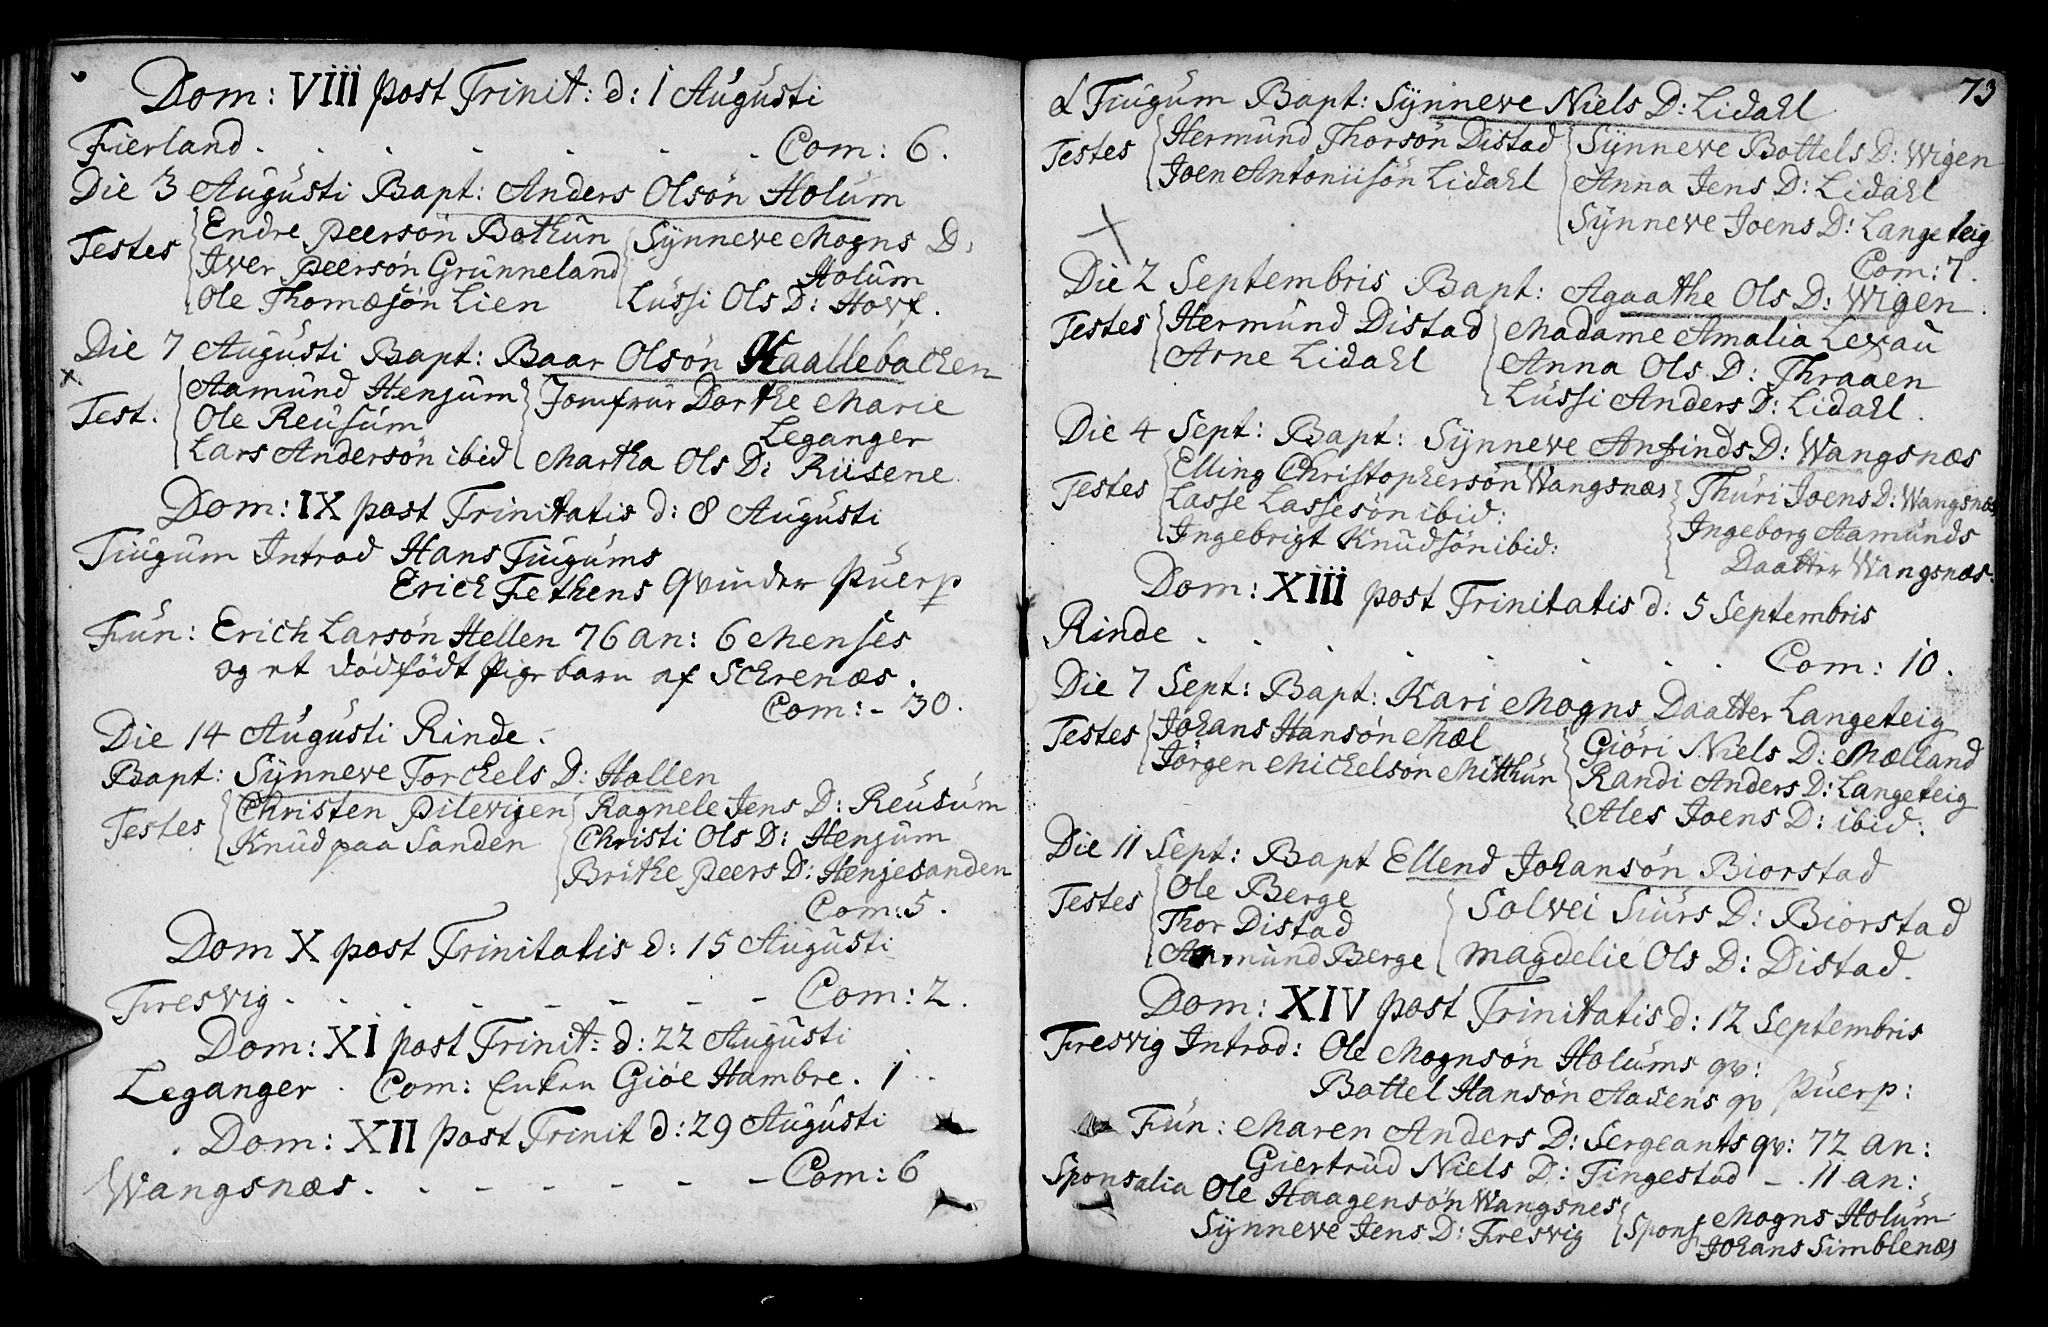 Dom: VIII post Trinit: d: 1 Augusti
Fierland . . . . . . . Com: 6.
Die 3 Augusti Bapt: Anders Olsøn Holum
Testes
Endre Peersøn Bothun
Iver Peersøn Grunneland
Ole Thomæsøn Lien
Synneve Mogns D:
Holum
Lussi Ols D: Hovf.
Die 7 Augusti Bapt: Baar Olsøn Kaallebachen
x
Test.
Aamund Henjum
Ole Reusum
Lars Andersøn ibid
Jomfrur Dorthe Marie
Leganger
Martha Ols D: Riisene
Dom: IX post Trinitatis d: 8 Augusti
Tiugum Introd Hans Tiugums
Erich Fethens Qvinder Puerp
Fun: Erich Larsøn Hellen 76 an: 6 Menses
og et dødfødt Pige barn af Schrenæs.
Com: - 30.
Die 14 Augusti Rinde.
Bapt: Synneve Torckels D: Hallen
Testes
Christen Pilevigen
Knud paa Sanden
Ragnele Jens D: Reusum
Christi Ols D: Henjum
Brithe Peers D: Henjesanden
Com: 5.
Dom X post Trinitatis d: 15 Augusti
Fresvig . . . - - - - - Com: 2.
Dom: XI post Trinit: d: 22 Augusti
Leganger . Com: Enken Giøe Hambre. 1
Dom: XII post Trinit d: 29 Augusti
Wangsnæs. . . - - - - - Com: 6
73
d Tiugum Bapt: Synneve Niels D: Lidahl
Testes
Hermund Thorsøn Distad
Joen Antoniisøn Lidahl
Synneve Bottels D: Wigen
Anna Jens D: Lidahl
Synneve Joens D: Langeteig
Com: 7.
Die 2 Septembris Bapt: Agaathe Ols D: Wigen.
Testes
Hermund Distad
Arne Lidahl
Madame Amalia Lexau
Anna Ols D: Thraaen
Lussi Anders D: Lidahl.
Die 4 Sept: Bapt: Synneve Anfinds D: Wangsnæs
Testes
Elling Christophersøn Wangsnæs
Lasse Lassesøn ibid:
Ingebrigt Knudsøn ibid:
Thuri Joens D: Wangsnæs
Ingeborg Aamunds
Daatter Wangsnæs.
Dom: XIII post Trinitatis d: 5 Septembris
Rinde . . . . . . . . Com: 10.
Die 7 Sept: Bapt: Kari Mogns Daatter Langeteig
Testes
Johans Hansøn Mæl
Jørgen Michelsøn Mitthun
Giøri Niels D: Mælland
Randi Anders D: Langeteig
Ales Joens D: ibid:
Die 11 Sept: Bapt Ellend Johansøn Biorstad
Testes
Ole Berge
Thor Distad
Aamund Berge
Solvei Siurs D: Biorstad
Magdelie Ols D: Distad.
Dom: XIV post Trinitatis d: 12 Septembris
Fresvig Introd: Ole Mognsøn Holums qv:
Bottel Hansøn Aasens qv Puerp:
Fun: Maren Anders D: Sergeants qv: 72 an:
Giertrud Niels D: Tingestad - . 11 an:
Sponsalia Ole Haagensøn Wangsnes
Synneve Jens D: Fresvig
Spons
Mogns Holum
Johans Simblenæs